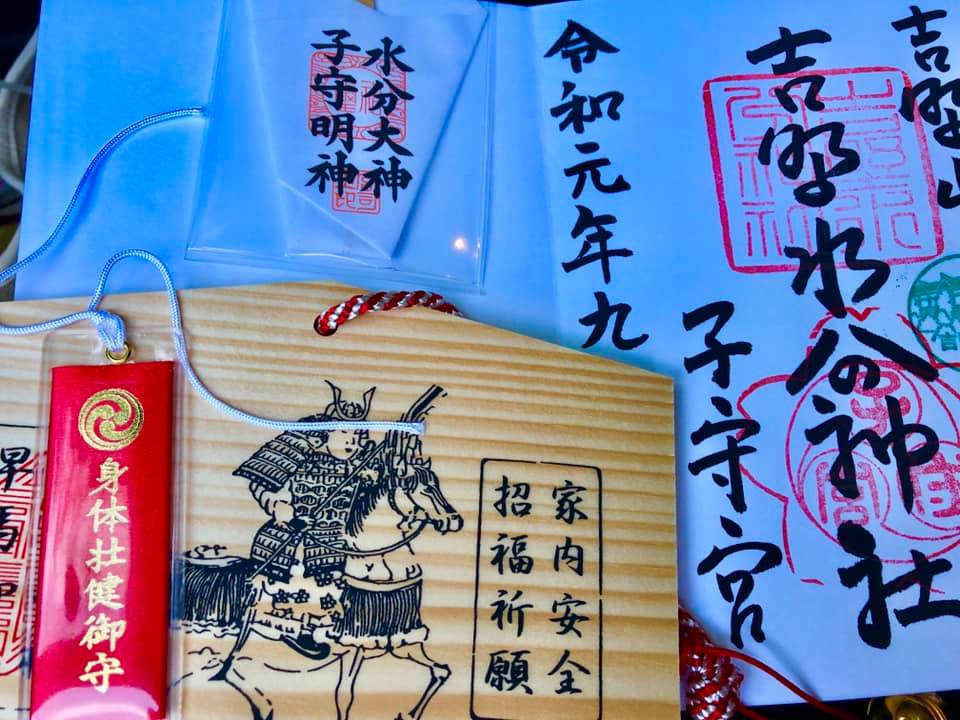 吉野山
吉野水分神社
子守宮
令和元年九
水分大神
子守明神
家内安全
招福祈願
身体壮健御守